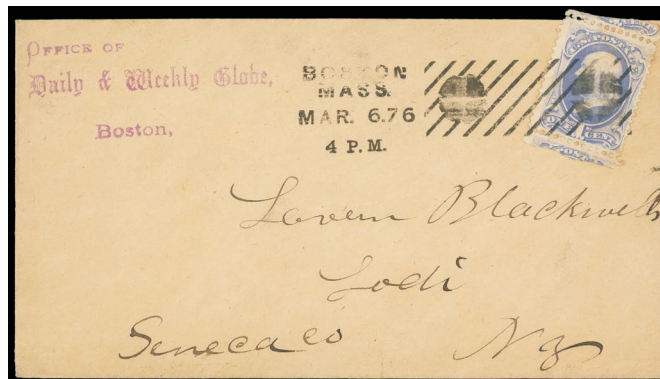 OFFICE OF
Daily & Weekly Globe,
Boston,
BOSTON
MASS.
MAR. 6.76
4 P.M.
U.S. POSTAGE
ONE CENT
Lovern Blackwell
Lodi
Seneca co NY